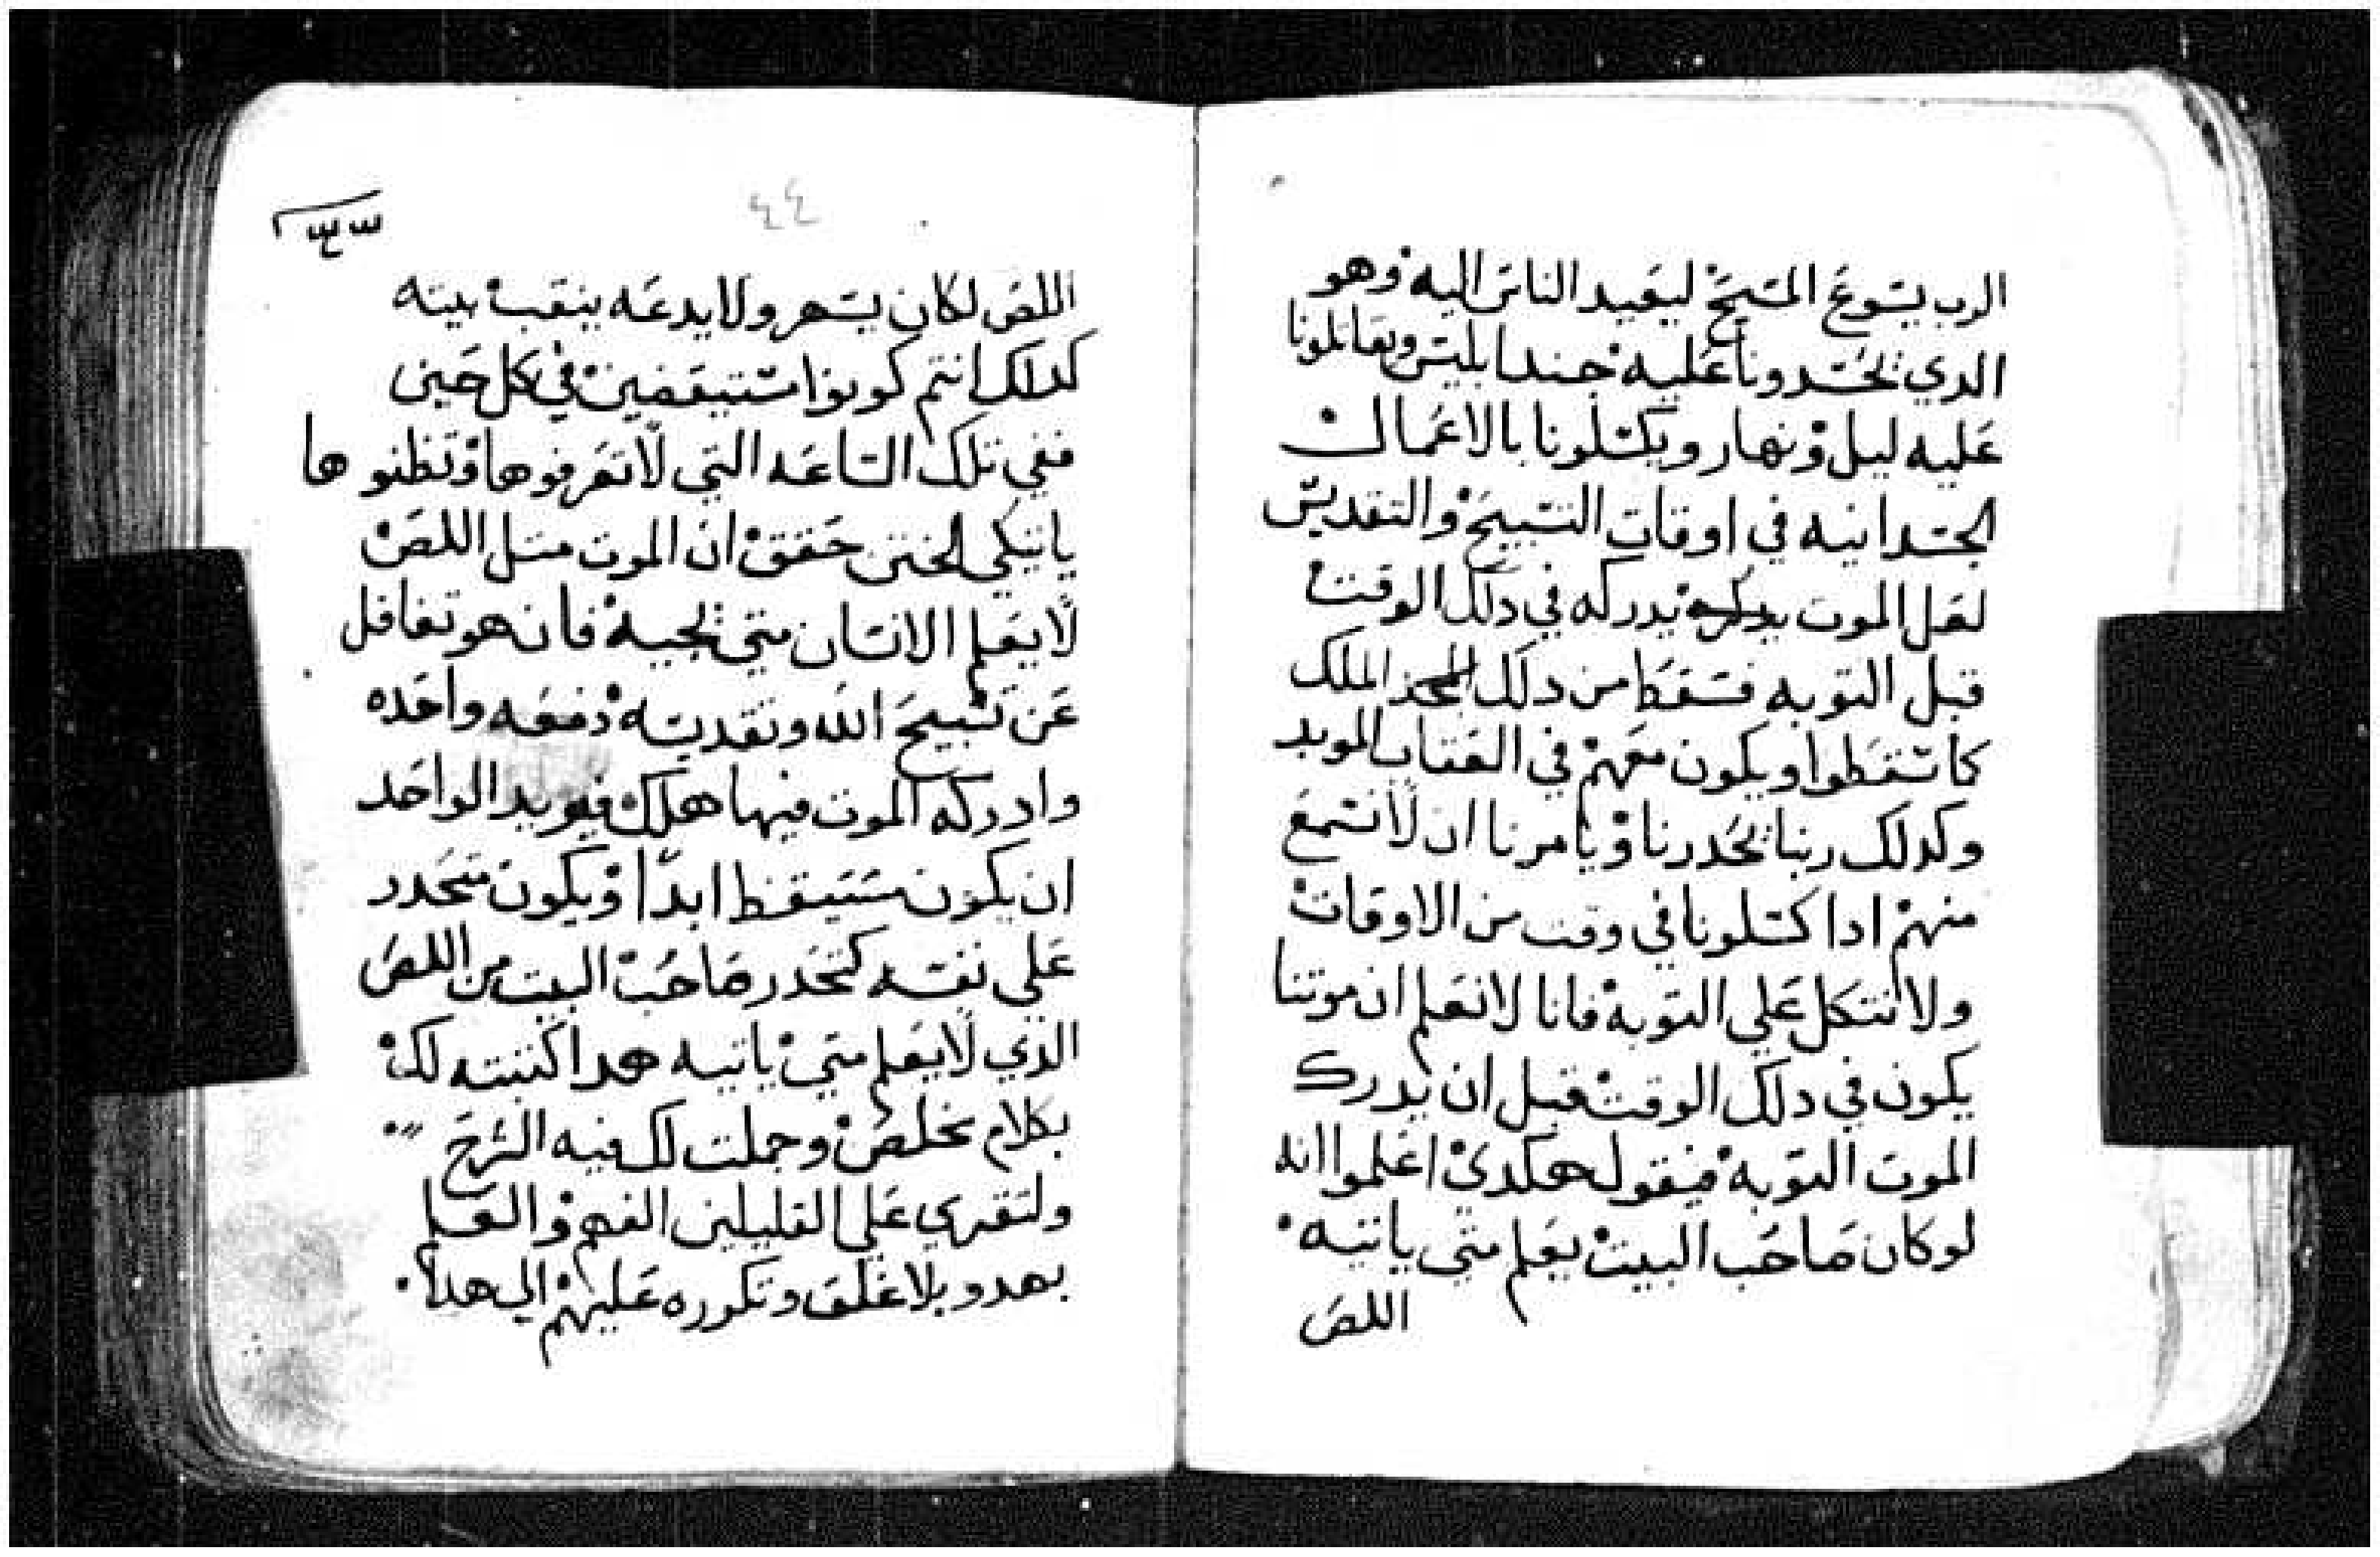 الرب يسوع المسيح ليعيد الناس اليه وهو
الدي يحسدونا عليه جند ابليس ويقاتلونا
عليه ليل ونهار ويكسلونا بالاعمال
الجسدانيه في اوقات التسبيح والتقديس
لعل الموت يدركه في دلك الوقت
قبل التوبه فسقط من دلك المجد الملك
كما سقطوا ويكون معهم في العتاب الموبد
وكدلك ربنا يحدرنا ويامرنا ان لا نسمع
منهم ادا كسلونا في وقت من الاوقات
ولا نتكل علي التوبه فانا لا نعلم ان موتنا
يكون في دلك الوقت قبل ان يدرك
الموت التوبه فيقول هكدي اعلموا انه
لو كان صاحب البيت يعلم متي ياتيه
اللص
٤٤
اللص لكان يسهر ولا يدعه ينقب بيته
كدلك انتم كونوا مستيقضين في كل حين
ففي تلك الساعه التي لا تعرفوها وتظنوها
ياتيكي الختن حقق ان الموت متل اللص
لا يعلم الانسان متي يجيه فان هو تغافل
عن تسبيح الله وتقديسه دفعه واحده
وادركه الموت فيها هلك فيريد الواحد
ان يكون مستيقظ ابدا ويكون متحدر
علي نفسه كتحدر صاحب البيت من اللص
الذي لا يعلم متي ياتيه هدا كتبته لك
بكلام مخلص وجملت لك فيه الشرح
ولتقري علي القليلين الفهم والعلم
بهدو بلا غلق وتكرره عليهم الي هدا